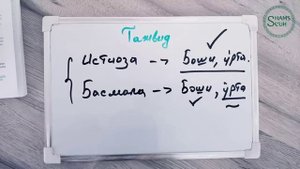 SHAMS
Тажвид
Истиоза -> Боши, ўрта.
Басмала -> Боши, ўрта